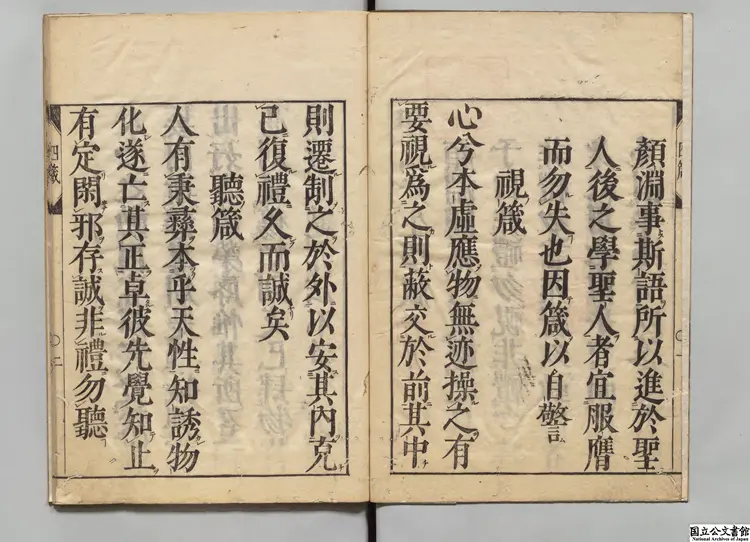 顏淵事斯語所以進於聖
人後之學聖人者宜服膺
而勿失也因箴以自警
視箴
心兮本虛應物無迹操之有
要視為之則蔽交於前其中
則遷制之於外以安其內克
己復禮久而誠矣
聽箴
人有秉彝本乎天性知誘物
化遂亡其正卓彼先覺知止
有定閑邪存誠非禮勿聽
四箴
四箴
〇一
〇二
国立公文書館
National Archives of Japan